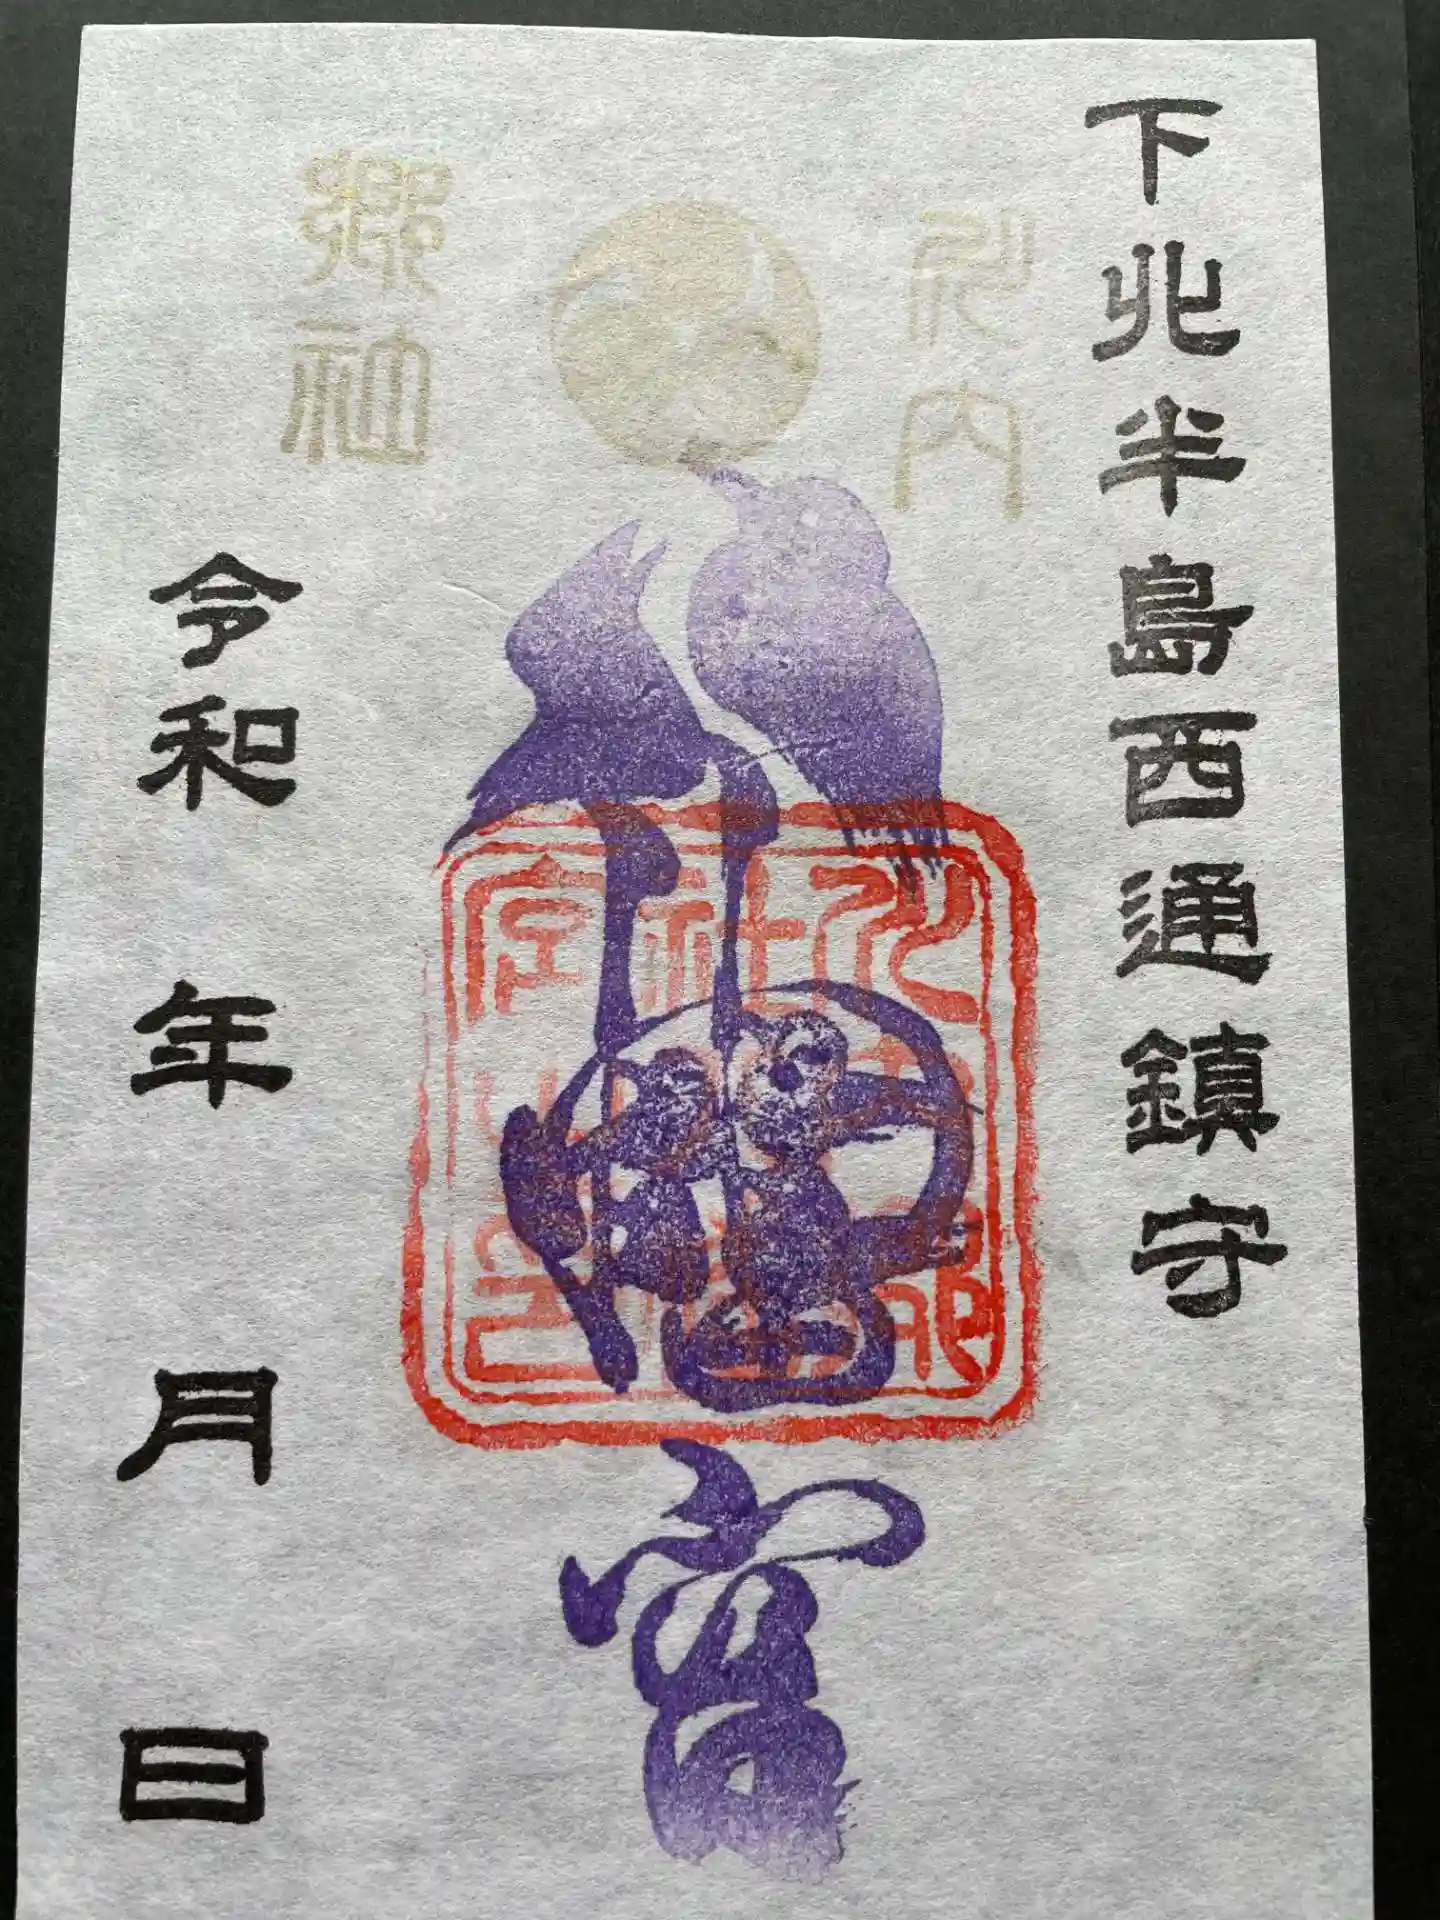 下北半島西通鎮守
川内
郷社
八幡宮
令和 年 月 日